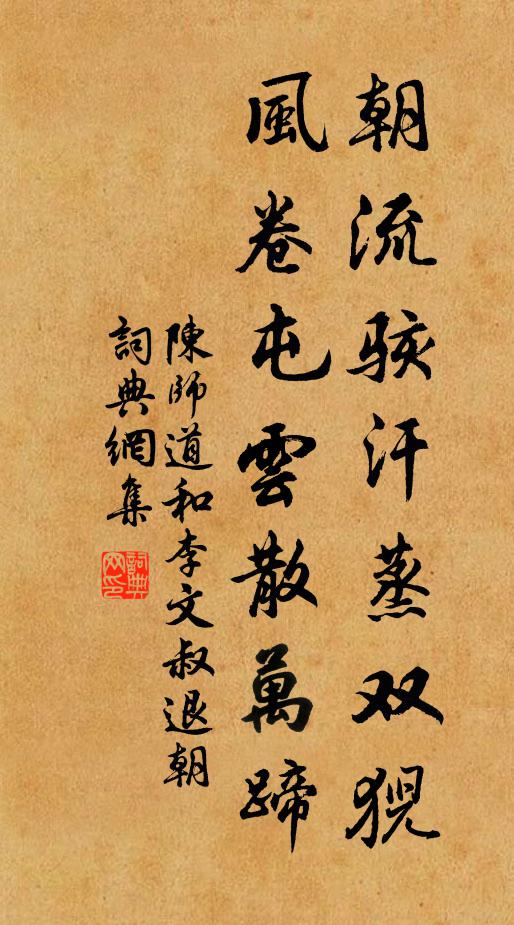 朝流駭汗蒸双猊
風卷屯雲散萬蹄
陳師道和李文叔退朝
詞典網集
詞典網印